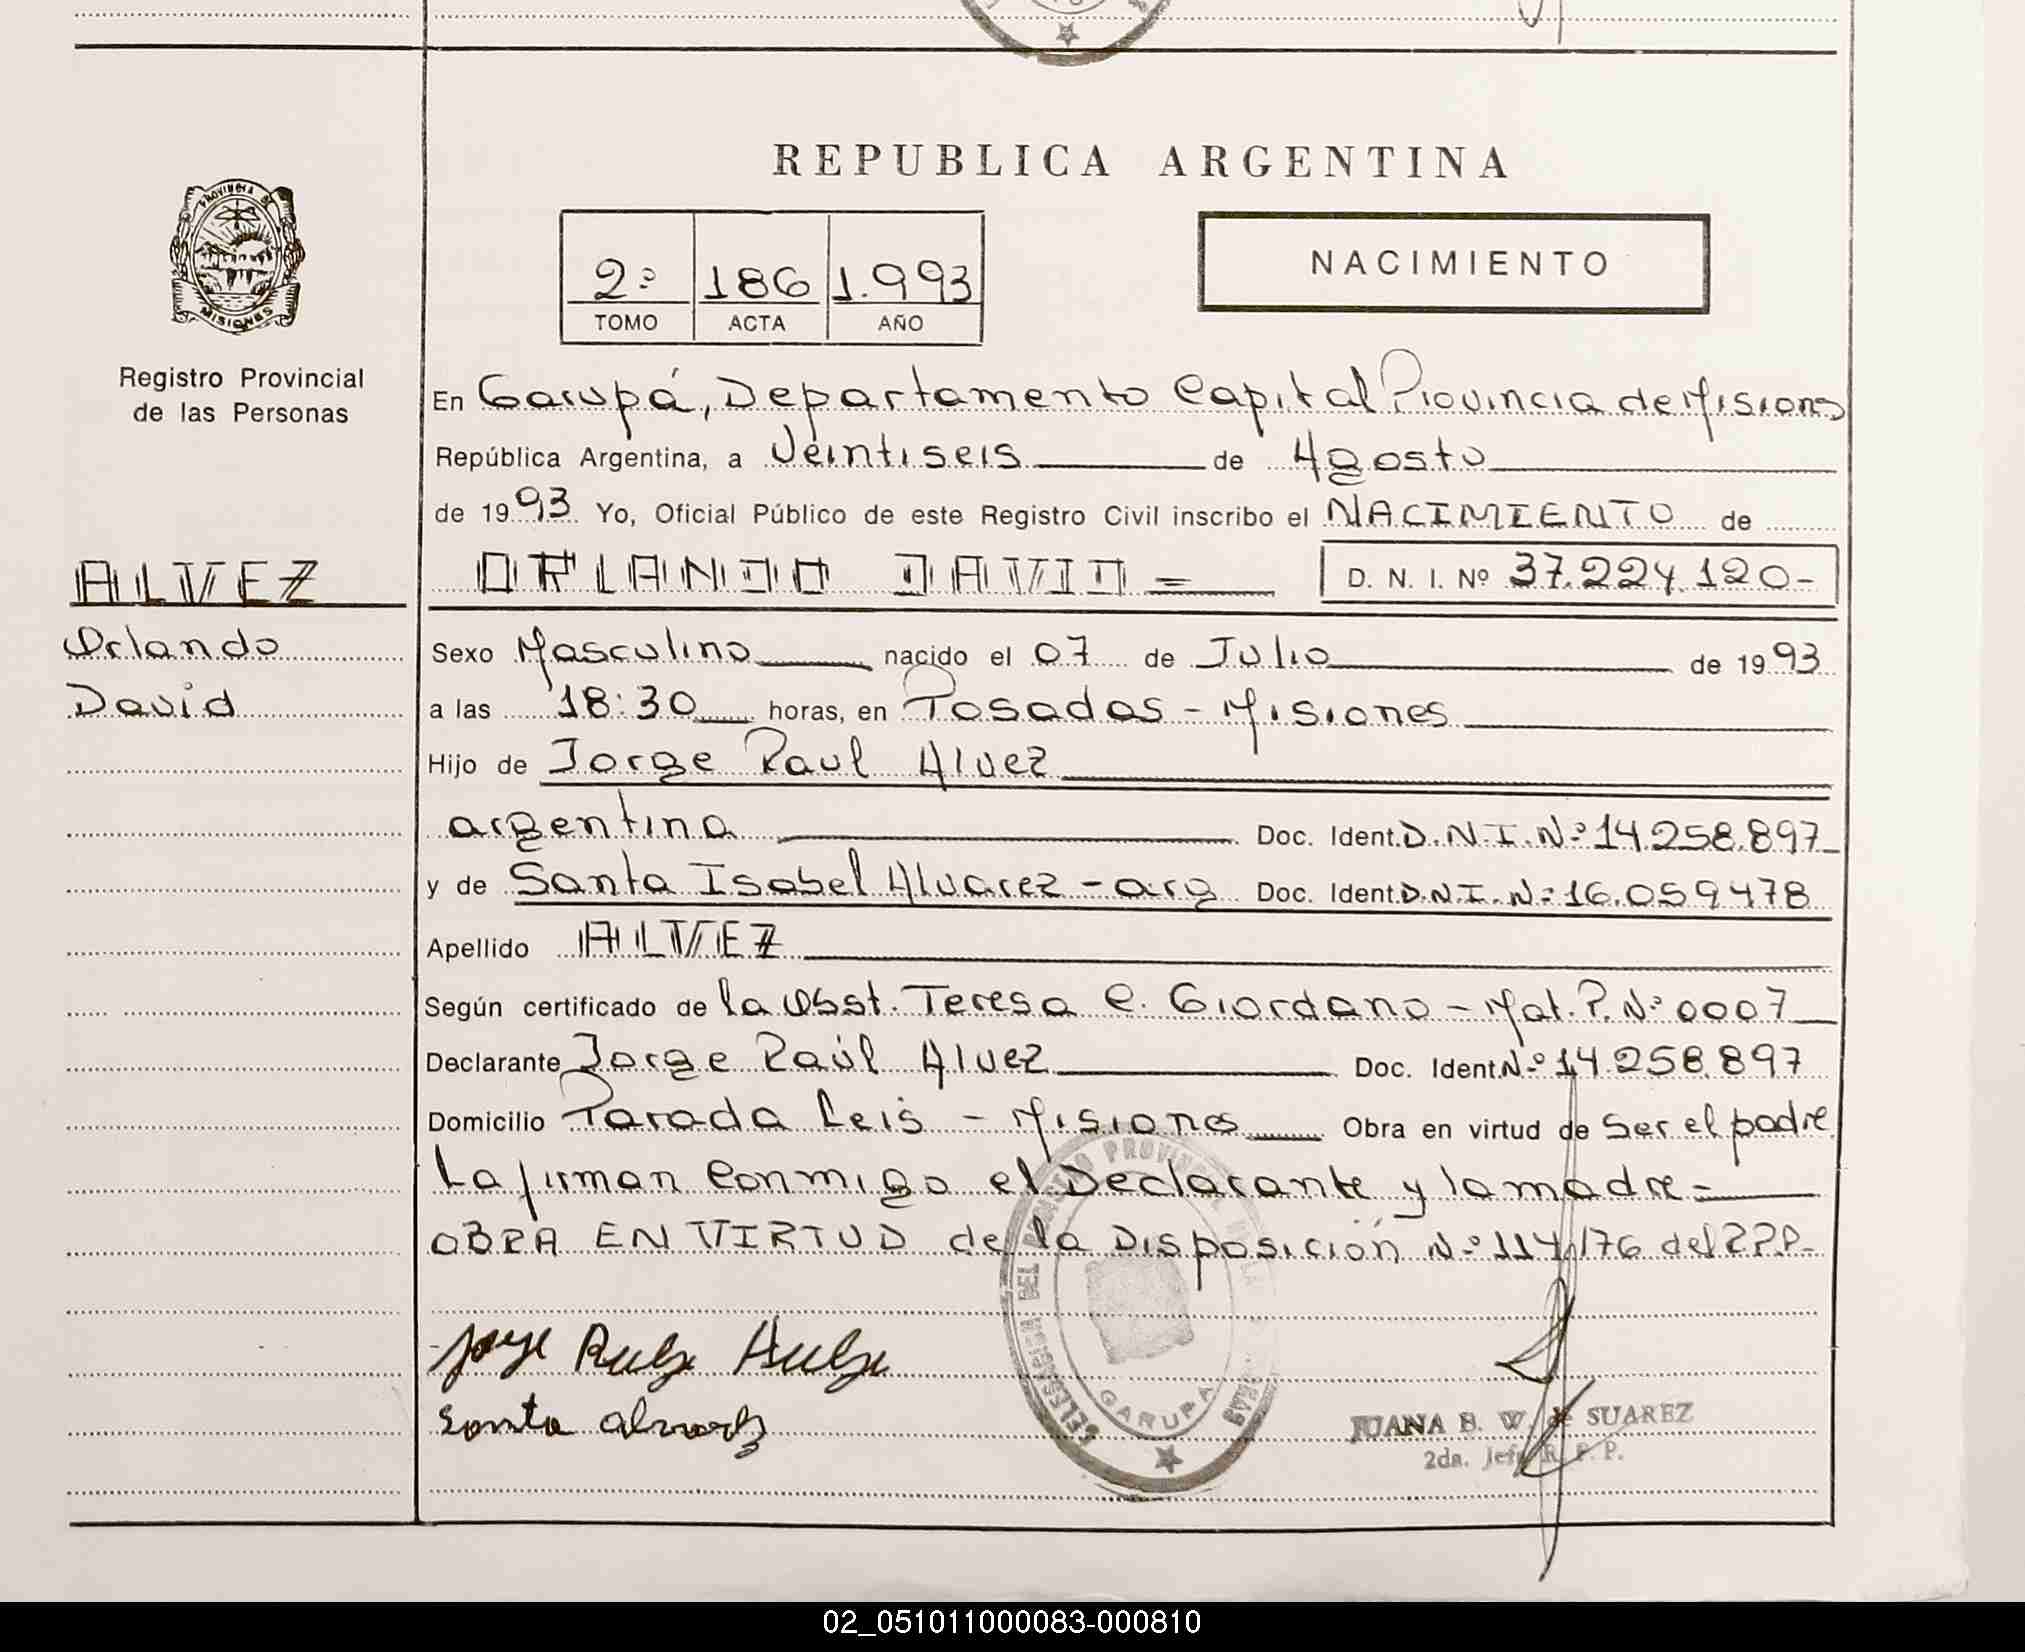 REPUBLICA ARGENTINA
PROVINCIA DE
MISIONES
Registro Provincial
de las Personas
2º 186 1.993
TOMO ACTA AÑO
NACIMIENTO
En Garupá, Departamento Capital Provincia de Misiones
República Argentina, a Veintiseis de Agosto
de 1993 Yo, Oficial Público de este Registro Civil inscribo el NACIMIENTO de
ALVEZ
Orlando
David
ORLANDO DAVID = D. N. I. Nº 37.224.120-
Sexo Masculino nacido el 07 de Julio de 1993
a las 18:30 horas, en Posadas - Misiones
Hijo de Jorge Raul Alvez
argentina Doc. Ident. D.N.I.Nº 14.258.897
y de Santa Isabel Alvarez - arg Doc. Ident. D.N.I.Nº 16.059478
Apellido ALVEZ
Según certificado de la Obst. Teresa C. Giordano - Mat. P. Nº 0007
Declarante Jorge Raúl Alvez Doc. Ident. Nº 14.258.897
Domicilio Parada Leis - Misiones Obra en virtud de Ser el padre
La firman Conmigo el Declarante y la madre =
OBRA EN VIRTUD de la Disposición Nº 114/76 del RPP.
DELEGACION DEL REGISTRO PROVINCIAL DE LAS
GARUPA
Santa Alvarez
JUANA B. W. de SUAREZ
2da. Jefe R. P. P.
02_051011000083-000810